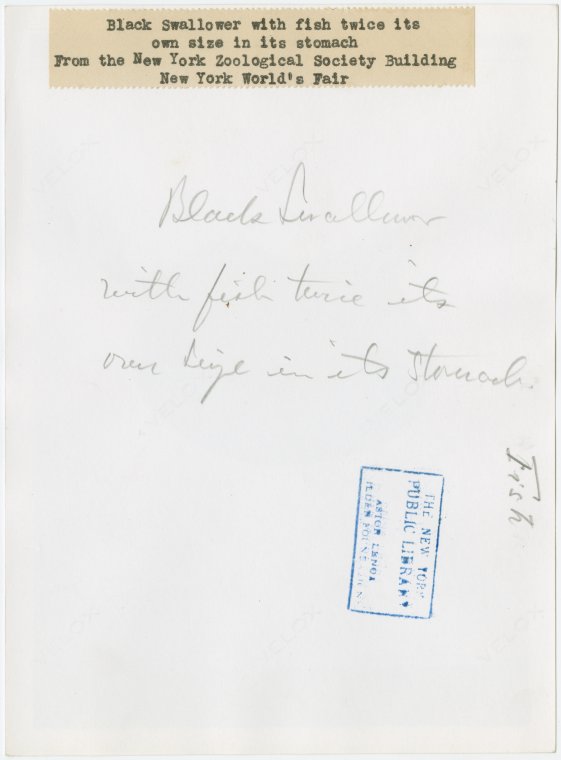 Black Swallower with fish twice its
own size in its stomach
From the New York Zoological Society Building
New York World's Fair
Black Swallower
with fish twice its
own size in its stomach.
Fish
THE NEW YORK
PUBLIC LIBRARY
ASTOR LENOX
TILDEN FOUNDATIONS
VELOX
VELOX
VELOX
VELOX
VELOX
VELOX